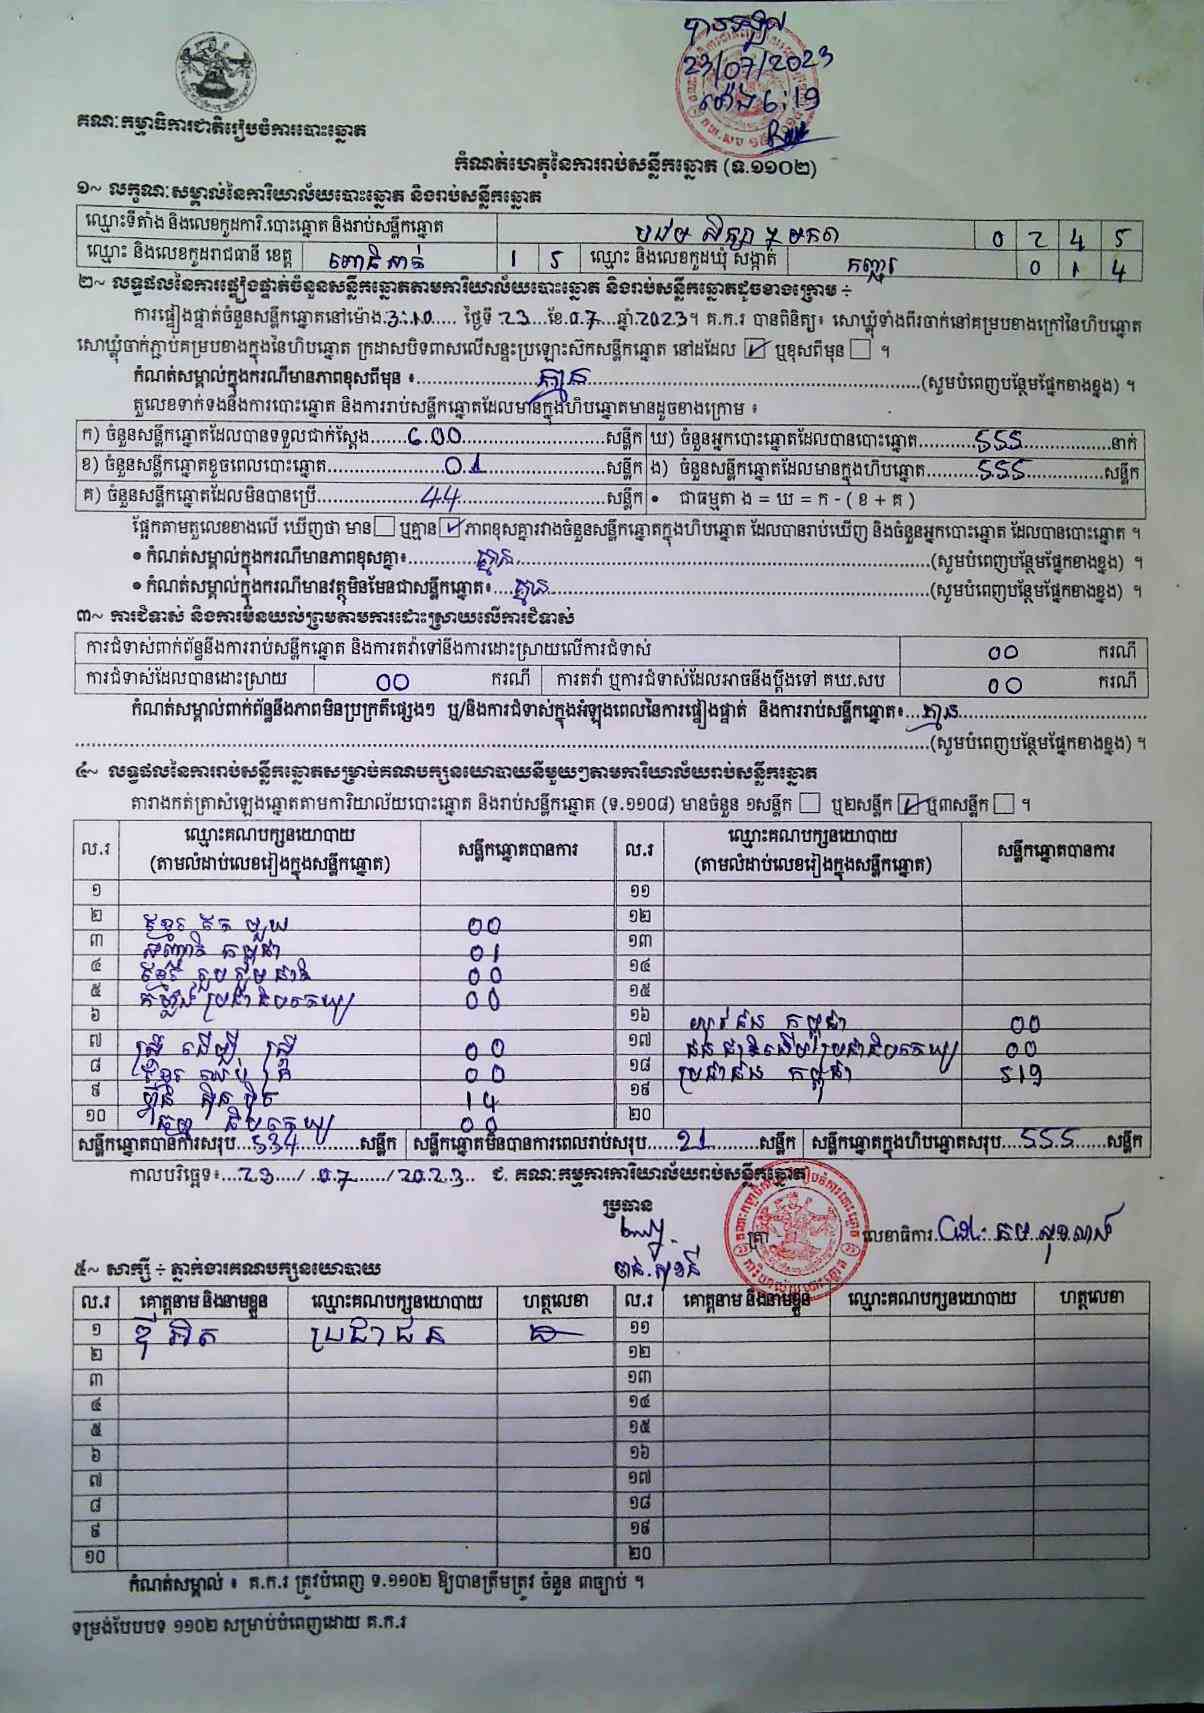 បានឃើញ
23/07/2023
ម៉ោង 6:19
គណៈកម្មាធិការជាតិរៀបចំការបោះឆ្នោត
កំណត់ហេតុនៃការរាប់សន្លឹកឆ្នោត (ទ.១១០២)
១~ លក្ខណៈសម្គាល់នៃការិយាល័យបោះឆ្នោត និងរាប់សន្លឹកឆ្នោត
ឈ្មោះទីតាំង និងលេខកូដការិ.បោះឆ្នោត និងរាប់សន្លឹកឆ្នោត បឋម សិក្សា 0 2 4 5
ឈ្មោះ និងលេខកូដរាជធានី ខេត្ត ពោធិ៍សាត់ 1 5 ឈ្មោះ និងលេខកូដឃុំ សង្កាត់ កញ្ជរ 0 1 4
២~ លទ្ធផលនៃការផ្ទៀងផ្ទាត់ចំនួនសន្លឹកឆ្នោតតាមការិយាល័យបោះឆ្នោត និងរាប់សន្លឹកឆ្នោតដូចខាងក្រោម ÷
ការផ្ទៀងផ្ទាត់ចំនួនសន្លឹកឆ្នោតនៅម៉ោង.3:10..... ថ្ងៃទី .23....ខែ.07....ឆ្នាំ.2023។ គ.ក.រ បានពិនិត្យ៖ សោឃ្លុំទាំងពីរចាក់នៅគម្របខាងក្រៅនៃហិបឆ្នោត
សោឃ្លុំចាក់ភ្ជាប់គម្របខាងក្នុងនៃហិបឆ្នោត ក្រដាសបិទពាសលើសន្ទះប្រឡោះស៊កសន្លឹកឆ្នោត នៅដដែល ☑ ឬខុសពីមុន ☐ ។
កំណត់សម្គាល់ក្នុងករណីមានភាពខុសពីមុន ៖......គ្មាន......(សូមបំពេញបន្ថែមផ្នែកខាងខ្នង) ។
តួលេខទាក់ទងនឹងការបោះឆ្នោត និងការរាប់សន្លឹកឆ្នោតដែលមានក្នុងហិបឆ្នោតមានដូចខាងក្រោម ៖
ក) ចំនួនសន្លឹកឆ្នោតដែលបានទទួលជាក់ស្តែង......600......សន្លឹក ឃ) ចំនួនអ្នកបោះឆ្នោតដែលបានបោះឆ្នោត......555......នាក់
ខ) ចំនួនសន្លឹកឆ្នោតខូចពេលបោះឆ្នោត......01......សន្លឹក ង) ចំនួនសន្លឹកឆ្នោតដែលមានក្នុងហិបឆ្នោត......555......សន្លឹក
គ) ចំនួនសន្លឹកឆ្នោតដែលមិនបានប្រើ......44......សន្លឹក • ជាធម្មតា ង = ឃ = ក - ( ខ + គ )
ផ្អែកតាមតួលេខខាងលើ ឃើញថា មាន☐ ឬគ្មាន☑ភាពខុសគ្នារវាងចំនួនសន្លឹកឆ្នោតក្នុងហិបឆ្នោត ដែលបានរាប់ឃើញ និងចំនួនអ្នកបោះឆ្នោត ដែលបានបោះឆ្នោត ។
• កំណត់សម្គាល់ក្នុងករណីមានភាពខុសគ្នា៖......គ្មាន......(សូមបំពេញបន្ថែមផ្នែកខាងខ្នង) ។
• កំណត់សម្គាល់ក្នុងករណីមានវត្ថុមិនមែនជាសន្លឹកឆ្នោត៖....គ្មាន......(សូមបំពេញបន្ថែមផ្នែកខាងខ្នង) ។
៣~ ការជំទាស់ និងការមិនយល់ព្រមតាមការដោះស្រាយលើការជំទាស់
ការជំទាស់ពាក់ព័ន្ធនឹងការរាប់សន្លឹកឆ្នោត និងការតវ៉ាទៅនឹងការដោះស្រាយលើការជំទាស់ 00 ករណី
ការជំទាស់ដែលបានដោះស្រាយ 00 ករណី ការតវ៉ា ឬការជំទាស់ដែលអាចនឹងប្តឹងទៅ គឃ.សប 00 ករណី
កំណត់សម្គាល់ពាក់ព័ន្ធនឹងភាពមិនប្រក្រតីផ្សេងៗ ឬ/និងការជំទាស់ក្នុងអំឡុងពេលនៃការផ្ទៀងផ្ទាត់ និងការរាប់សន្លឹកឆ្នោត៖....គ្មាន......
......(សូមបំពេញបន្ថែមផ្នែកខាងខ្នង) ។
៤~ លទ្ធផលនៃការរាប់សន្លឹកឆ្នោតសម្រាប់គណបក្សនយោបាយនីមួយៗតាមការិយាល័យរាប់សន្លឹកឆ្នោត
តារាងកត់ត្រាសំឡេងឆ្នោតតាមការិយាល័យបោះឆ្នោត និងរាប់សន្លឹកឆ្នោត (ទ.១១០៨) មានចំនួន ១សន្លឹក ☐ ឬ២សន្លឹក ☑ ឬ៣សន្លឹក ☐ ។
ល.រ ឈ្មោះគណបក្សនយោបាយ (តាមលំដាប់លេខរៀងក្នុងសន្លឹកឆ្នោត) សន្លឹកឆ្នោតបានការ ល.រ ឈ្មោះគណបក្សនយោបាយ (តាមលំដាប់លេខរៀងក្នុងសន្លឹកឆ្នោត) សន្លឹកឆ្នោតបានការ
១ ១១
២ ខ្មែរ តែ មួយ 00 ១២
៣ សញ្ជាតិ កម្ពុជា 01 ១៣
៤ ខ្មែរ រួបរួម ជាតិ 00 ១៤
៥ កម្លាំង ប្រជាធិបតេយ្យ 00 ១៥
៦ ១៦ យុវជន កម្ពុជា 00
៧ ស្ត្រី ដើម្បី ស្ត្រី 00 ១៧ ជនជាតិដើមប្រជាធិបតេយ្យ 00
៨ ខ្មែរ ឈប់ ក្រ 00 ១៨ ប្រជាជន កម្ពុជា 519
៩ ហ្វ៊ុនស៊ិនប៉ិច 14 ១៩
១០ ធម្មាធិបតេយ្យ 00 ២០
សន្លឹកឆ្នោតបានការសរុប...534......សន្លឹក សន្លឹកឆ្នោតមិនបានការពេលរាប់សរុប......21......សន្លឹក សន្លឹកឆ្នោតក្នុងហិបឆ្នោតសរុប...555......សន្លឹក
កាលបរិច្ឆេទ៖....23..../..07...../2023.. ជ. គណៈកម្មការការិយាល័យរាប់សន្លឹកឆ្នោត
ប្រធាន
ត្រា លេខាធិការ
៥~ សាក្សី ÷ ភ្នាក់ងារគណបក្សនយោបាយ
ល.រ គោត្តនាម និងនាមខ្លួន ឈ្មោះគណបក្សនយោបាយ ហត្ថលេខា ល.រ គោត្តនាម និងនាមខ្លួន ឈ្មោះគណបក្សនយោបាយ ហត្ថលេខា
១ ប្រជាជន ១១
២ ១២
៣ ១៣
៤ ១៤
៥ ១៥
៦ ១៦
៧ ១៧
៨ ១៨
៩ ១៩
១០ ២០
កំណត់សម្គាល់ ៖ គ.ក.រ ត្រូវបំពេញ ទ.១១០២ ឱ្យបានត្រឹមត្រូវ ចំនួន ៣ច្បាប់ ។
ទម្រង់បែបបទ ១១០២ សម្រាប់បំពេញដោយ គ.ក.រ